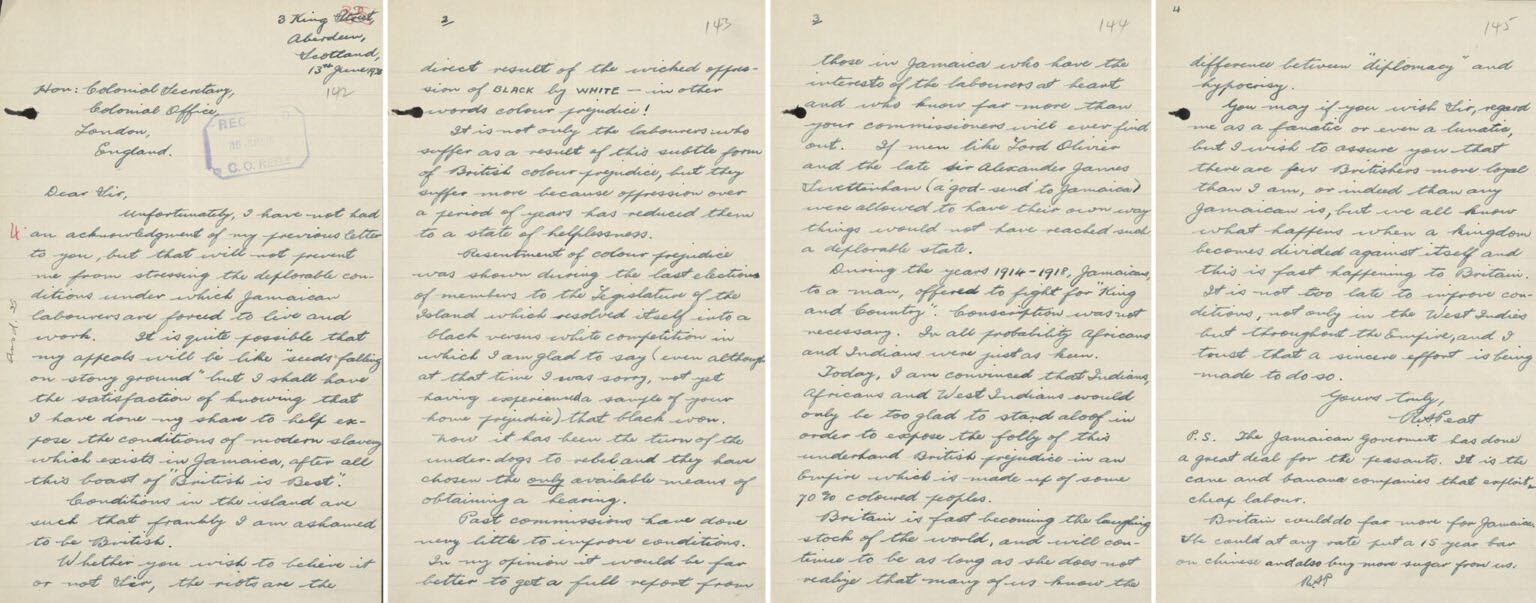 3 King Street,
Aberdeen,
Scotland,
13th June 1938
142
Hon: Colonial Secretary,
Colonial Office,
London,
England.
REC
C. O. REGY
Dear Sir,
Unfortunately, I have not had
4 an acknowledgment of my previous letter
to you, but that will not prevent
me from stressing the deplorable con-
ditions under which Jamaican
labourers are forced to live and
work. It is quite possible that
my appeals will be like "seeds falling
on stony ground" but I shall have
the satisfaction of knowing that
I have done my share to help ex-
pose the conditions of modern slavery
which exists in Jamaica, after all
this boast of "British is Best".
Conditions in the island are
such that frankly I am ashamed
to be British.
Whether you wish to believe it
or not Sir, the riots are the
2
143
direct result of the wicked oppres-
sion of BLACK by WHITE — in other
words colour prejudice!
It is not only the labourers who
suffer as a result of this subtle form
of British colour prejudice, but they
suffer more because oppression over
a period of years has reduced them
to a state of helplessness.
Resentment of colour prejudice
was shown during the last elections
of members to the Legislature of the
Island which resolved itself into a
black versus white competition in
which I am glad to say (even although
at that time I was sorry, not yet
having experienced a sample of your
home prejudice) that black won.
Now it has been the turn of the
under-dogs to rebel and they have
chosen the only available means of
obtaining a hearing.
Past commissions have done
very little to improve conditions.
In my opinion it would be far
better to get a full report from
3
144
those in Jamaica who have the
interests of the labourers at heart
and who know far more than
your commissioners will ever find
out. If men like Lord Olivier
and the late Sir Alexander James
Swettenham (a god-send to Jamaica)
were allowed to have their own way
things would not have reached such
a deplorable state.
During the years 1914-1918, Jamaicans,
to a man, offered to fight for "King
and Country". Conscription was not
necessary. In all probability Africans
and Indians were just as keen.
Today, I am convinced that Indians,
Africans and West Indians would
only be too glad to stand aloof in
order to expose the folly of this
underhand British prejudice in an
Empire which is made up of some
70% coloured peoples.
Britain is fast becoming the laughing
stock of the world, and will con-
tinue to be as long as she does not
realize that many of us know the
4
145
difference between "diplomacy" and
hypocrisy.
You may if you wish Sir, regard
me as a fanatic or even a lunatic,
but I wish to assure you that
there are few Britishers more loyal
than I am, or indeed than any
Jamaican is, but we all know
what happens when a kingdom
becomes divided against itself and
this is fast happening to Britain.
It is not too late to improve con-
ditions, not only in the West Indies
but throughout the Empire, and I
trust that a sincere effort is being
made to do so.
Yours truly,
R.A. Peat
P.S. The Jamaican Goverment has done
a great deal for the peasants. It is the
cane and banana companies that exploit
cheap labour.
Britain could do far more for Jamaica.
She could at any rate put a 15 year bar
on chinese and also buy more sugar from us.
R.A.P